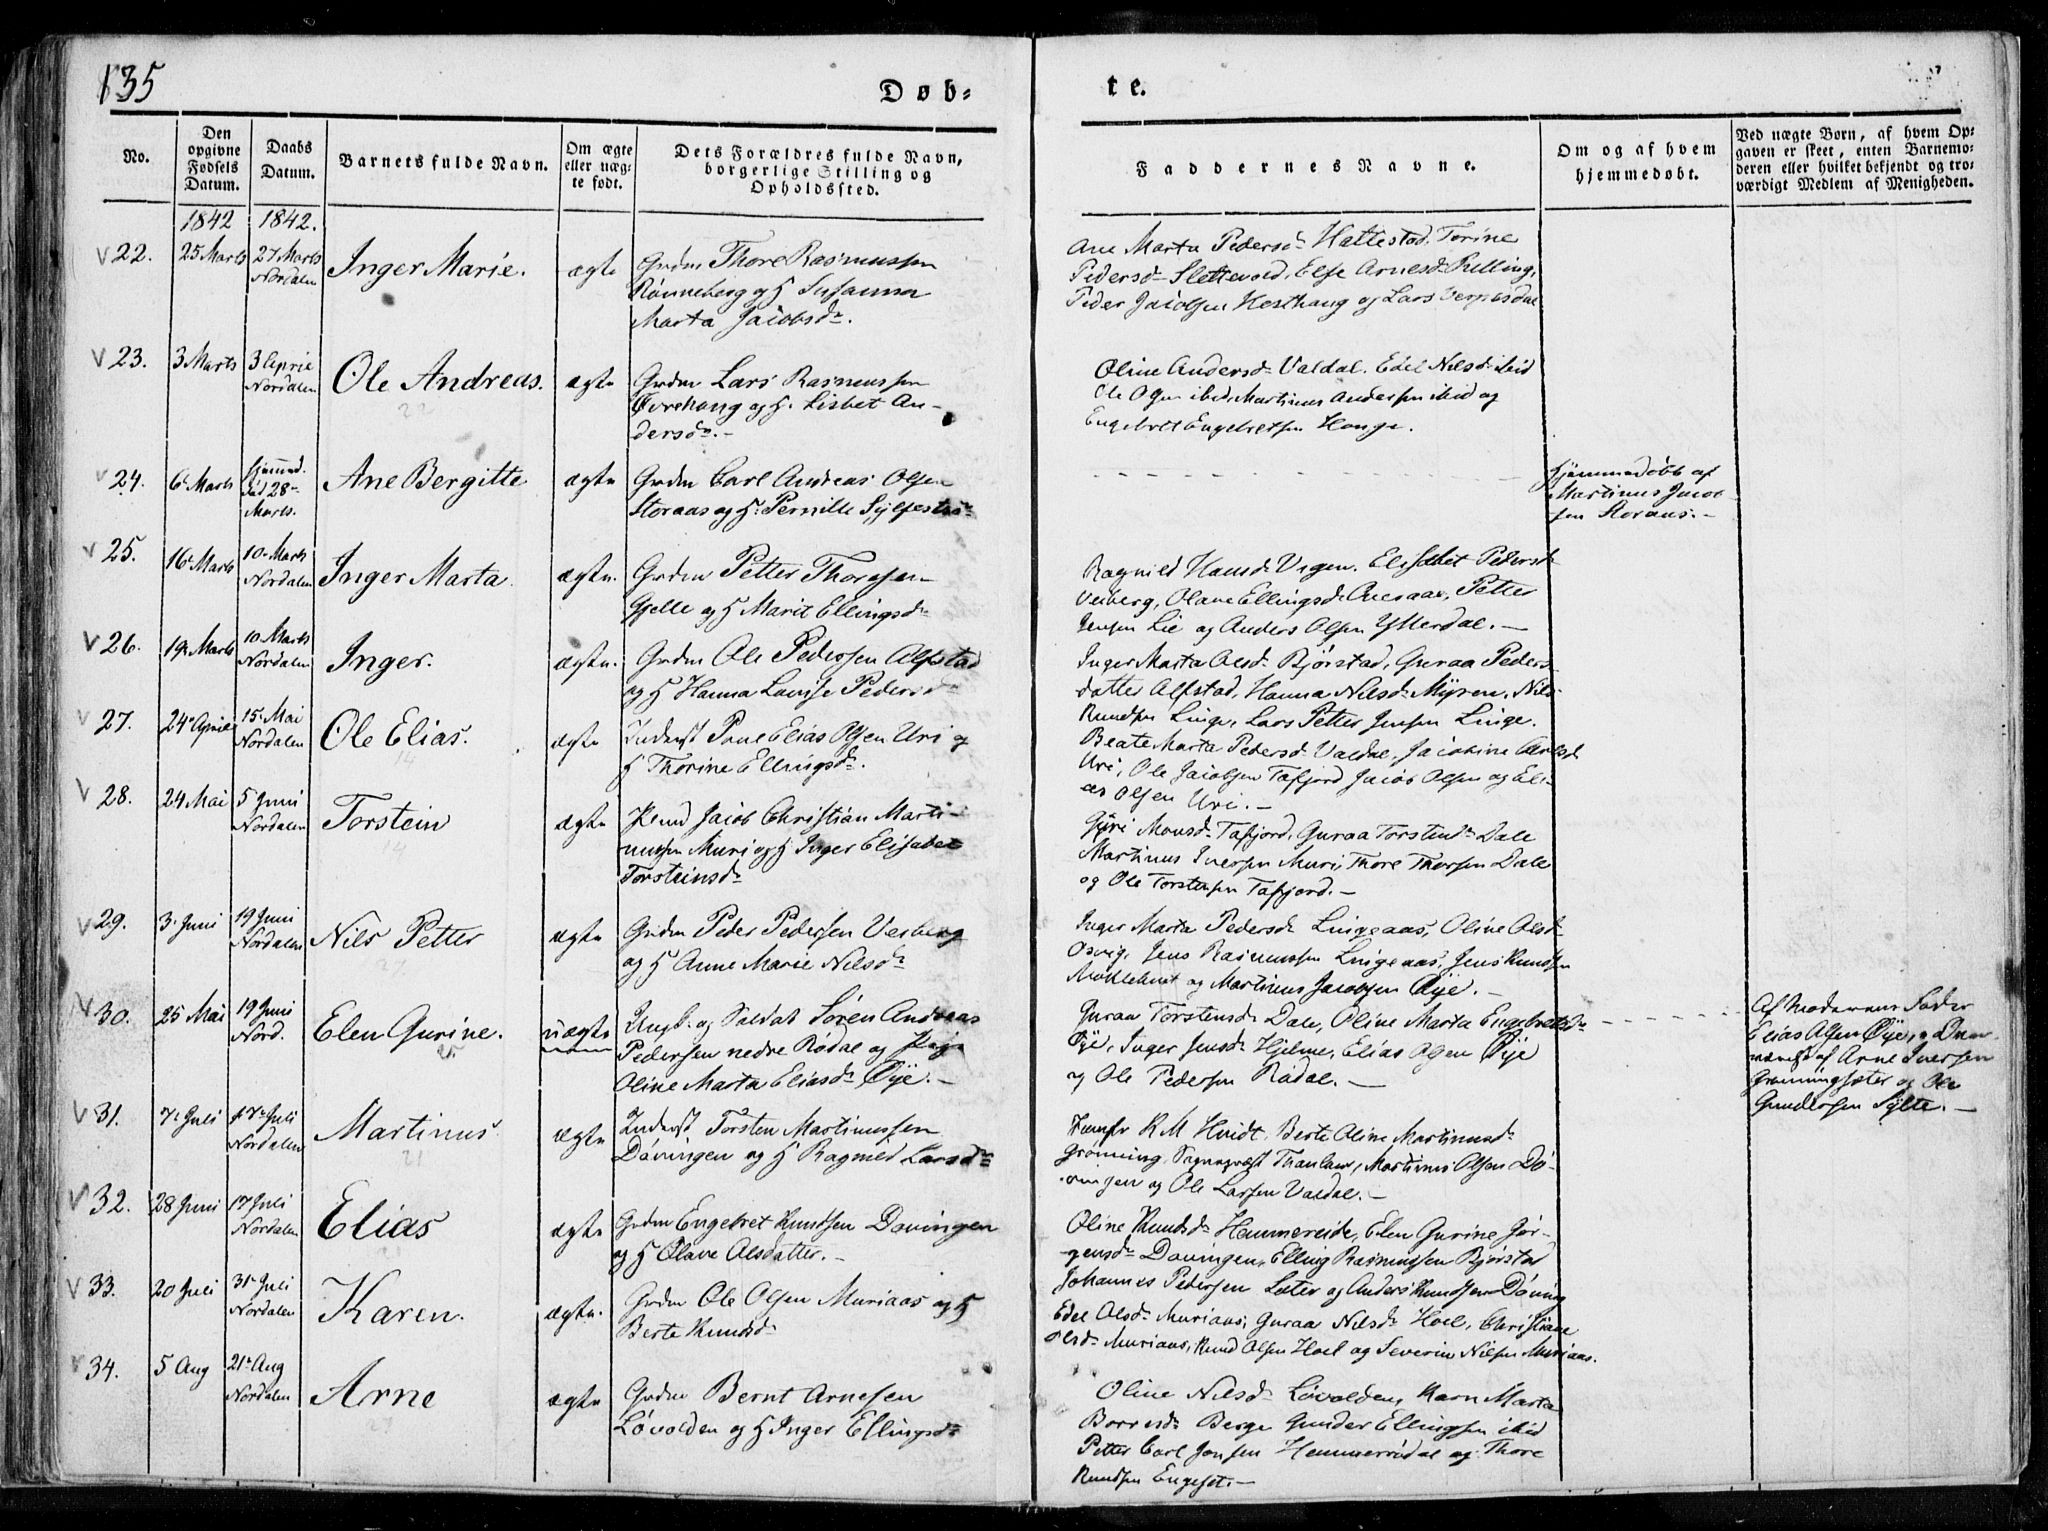 135
Døb=
te.
No.
Den opgivne Fødsels Datum.
Daabs Datum.
Barnets fulde Navn.
Om ægte eller uæg- te født.
Dets Forældres fulde Navn, borgerlige Stilling og Opholdssted.
Faddernes Navne.
Om og af hvem hjemmedøbt.
Ved uægte Børn, af hvem Op- gaven er skeet, enten Barnemo- deren eller hvilket bekjendt og tro- værdigt Medlem af Menigheden.
1842 1842.
22. 25 Marts 27 Marts Nordalen Inger Marie. ægte
Grdm Thore Rasmussen
Rønneberg og H Susanna
Marta Jacobsdr.
Ane Marta Pedersd. Hattestad. Torine
Pedersd. Slettevold, Else Arnesd. Relling,
Peder Jacobsen Hesthaug og Lars
23. 3 Marts 3 Aprie Nordalen Ole Andreas. ægte
Grdm Lars Rasmussen
Øvrehaug og H. Lisbet An-
dersdr.-
Oline Andersd. Valdal. Edel Nilsd. ibid
Ole Olsen ibid, Martinus Andersen ibid og
Engebret Engebretsen Hauge.
24. 6 Marts Hjemmed. død 28 Marts. Ane Bergitte ægte
Grdm Carl Andreas Olsen
Storaas og H. Pernille Sylfestdr
Hjemmedøbt af
Martinus Jacob-
sen Storaas.-
25. 16 Marts 10 Marts Nordalen Inger Marta ægte.
Grdm Petter Thoresen
Gjelle og H Marit Ellingsdr
Ragnild Hansd. Uren. Elisabet Pedersd.
Veiberg, Olave Ellingsd. Petter
Jensen Lie og Anders Olsen Ytterdal.-
26. 19 Marts 10 Marts Nordalen Inger. ægte.
Grdm Ole Pedersen Alfstad
og H Hanna Lovise Pedersdr
Inger Marta Olsd. Bjørstad, Guraa Peders-
datter Alfstad, Hanna Nilsd. Myren, Nils
Knudsen Linge, Lars Petter Jensen Linge.
27. 24 Aprie 15 Mai Nordalen Ole Elias. ægte
14
Inderst Paul Elias Olsen Uri og
H Thorine Ellingsdr.
Beate Marta Pedersd. Valdal. Jacobine Carlsd
Uri, Ole Jacobsen Tafjord Jacob Olsen og Eli-
as Olsen Uri.-
28. 24 Mai 5 Juni Nordalen Torstein ægte
14
Knud Jacob Christian Marti-
nussen Muri og H Inger Elisabet
Torsteinsdr
Guri Monsd. Tafjord, Guraa Torstensd. Dale
Martinus Iversen Muri, Thore Thorsen Dale
og Ole Torstensen Tafjord.-
29. 3 Juni 19 Juni Nordalen Nils Petter ægte
Grdm Peder Pedersen Veiberg
og H Anne Marie Nilsdr
Inger Marta Pedersd. Lingeaas, Oline Olsd.
Osvig, Jens Rasmussen Lingeaas, Jens Knudsen
og Martinus Jacobsen Øye.-
30. 25 Mai 19 Juni Nord. Elen Gurine. uægte
25
Ungk. og Soldat Søren Andreas
Pedersen nedre Rødal og Pige
Oline Marta Eliasdr Øye.-
Guraa Torstensd. Dale, Oline Marta Engebretsd.
Øye, Inger Jensd. Hjelme, Elias Olsen Øye
og Ole Pedersen Rødal.-
Af Moderens Fader
Elias Olsen Øye,
af Arne Iversen
Grønningsæter og Ole
Gundersen Sylte.-
31. 7 Juli 17 Juli Nordalen Martinus. ægte
21
Inderst Torsten Martinussen
Døvingen og H Ragnild Larsdr
Jomfr K M Hvidt, Berte Oline Martinusd.
Grønning, Sognepræst Thaulow, Martinus Olsen Dø-
vingen og Ole Larsen Valdal.-
32. 28 Juni 17 Juli Nordalen Elias ægte
Grdm Engebret Knudsen Døvingen
og H Olave Olsdatter.-
Oline Knudsd. Hemmereide, Elen Gurine Jør-
gensd. Døvingen, Elling Rasmussen Bjørstad
Johannes Pedersen Sæter og Anders Knudsen Døving
33. 20 Juli 31 Juli Nordalen Karen. ægte.
Grdm Ole Olsen Muriaas og H
Berte Knudsd.
Edel Olsd. Muriaas, Guraa Nilsd. Hoel, Christiane
Olsd. Muriaas, Knud Olsen Hoel og Severin Nilsen Muriaas.
34. 5 Aug 21 Aug Nordalen Arne ægte
Grdm Bernt Arnesen
Løvolden og H Inger Ellingsdr
Oline Nilsd. Løvolden, Karn Marta
Borresd. Berge Gunder Ellingsen ibid
Petter Carl Jonsen Hemmerødal og Thore
Knudsen Engeset.-